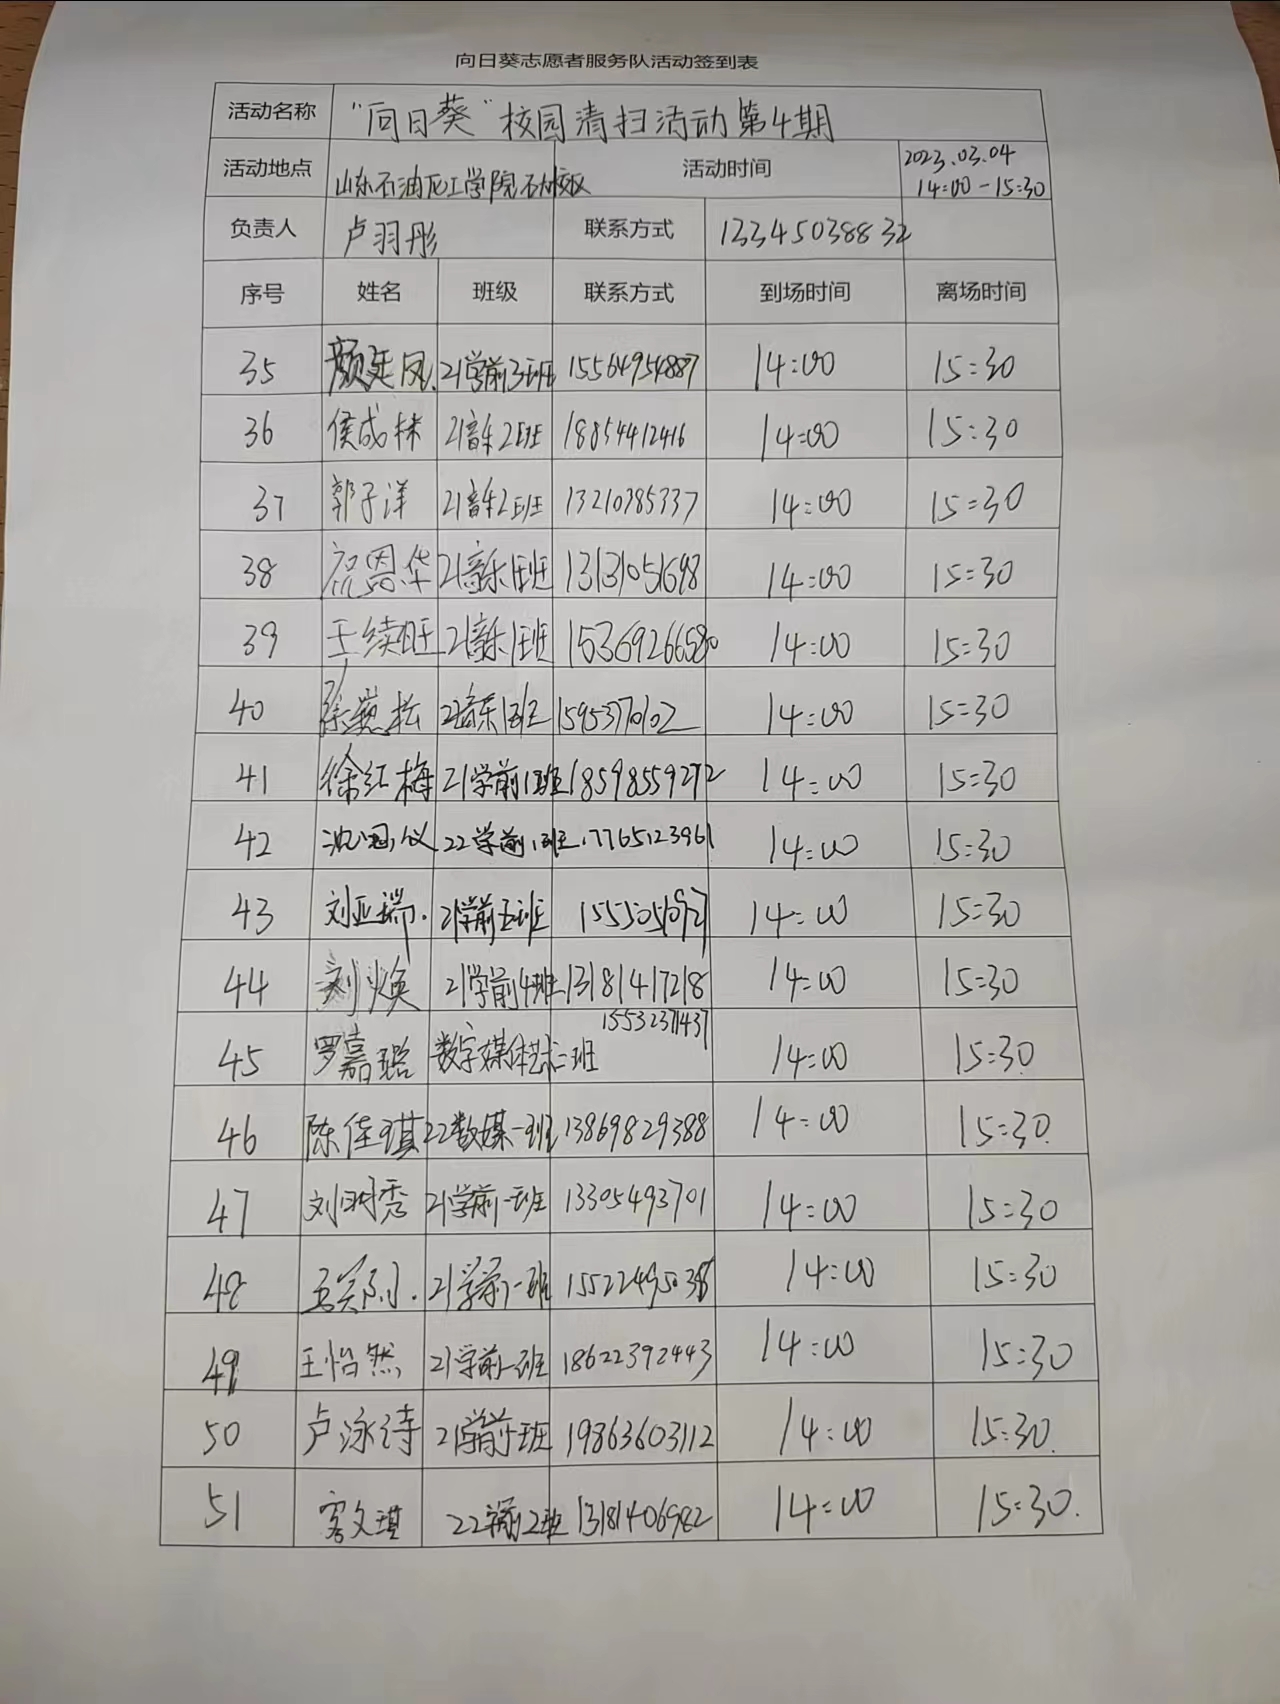 向日葵志愿者服务队活动签到表
活动名称 "向日葵"校园清扫活动第4期
活动地点 山东石油化工学院 活动时间 2023.03.04
14:00-15:30
负责人 卢羽彤 联系方式 13345038832
序号 姓名 班级 联系方式 到场时间 离场时间
35 颜廷凤 21学前3班 15564954887 14:00 15:30
36 侯成林 21音乐2班 18854412416 14:00 15:30
37 郭子洋 21音乐2班 13210385337 14:00 15:30
38 祝恩华 21音乐1班 13131051698 14:00 15:30
39 王续旺 21音乐1班 15369266580 14:00 15:30
40 1班 14:00 15:30
41 徐红梅 21学前1班 18598559272 14:00 15:30
42 22学前1班 17765123961 14:00 15:30
43 刘亚瑞 21学前五班 14:00 15:30
44 刘焕 21学前4班 13181417218 14:00 15:30
45 罗嘉璐 数字媒体艺术二班 15532371437 14:00 15:30
46 陈佳琪 22数媒一班 13869829388 14:00 15:30
47 刘明秀 21学前一班 13305493701 14:00 15:30
48 21学前一班 14:00 15:30
49 王怡然 21学前一班 18622392443 14:00 15:30
50 卢泳诗 21学前 班 19863603112 14:00 15:30
51 文琪 22学前2班 13181406982 14:00 15:30